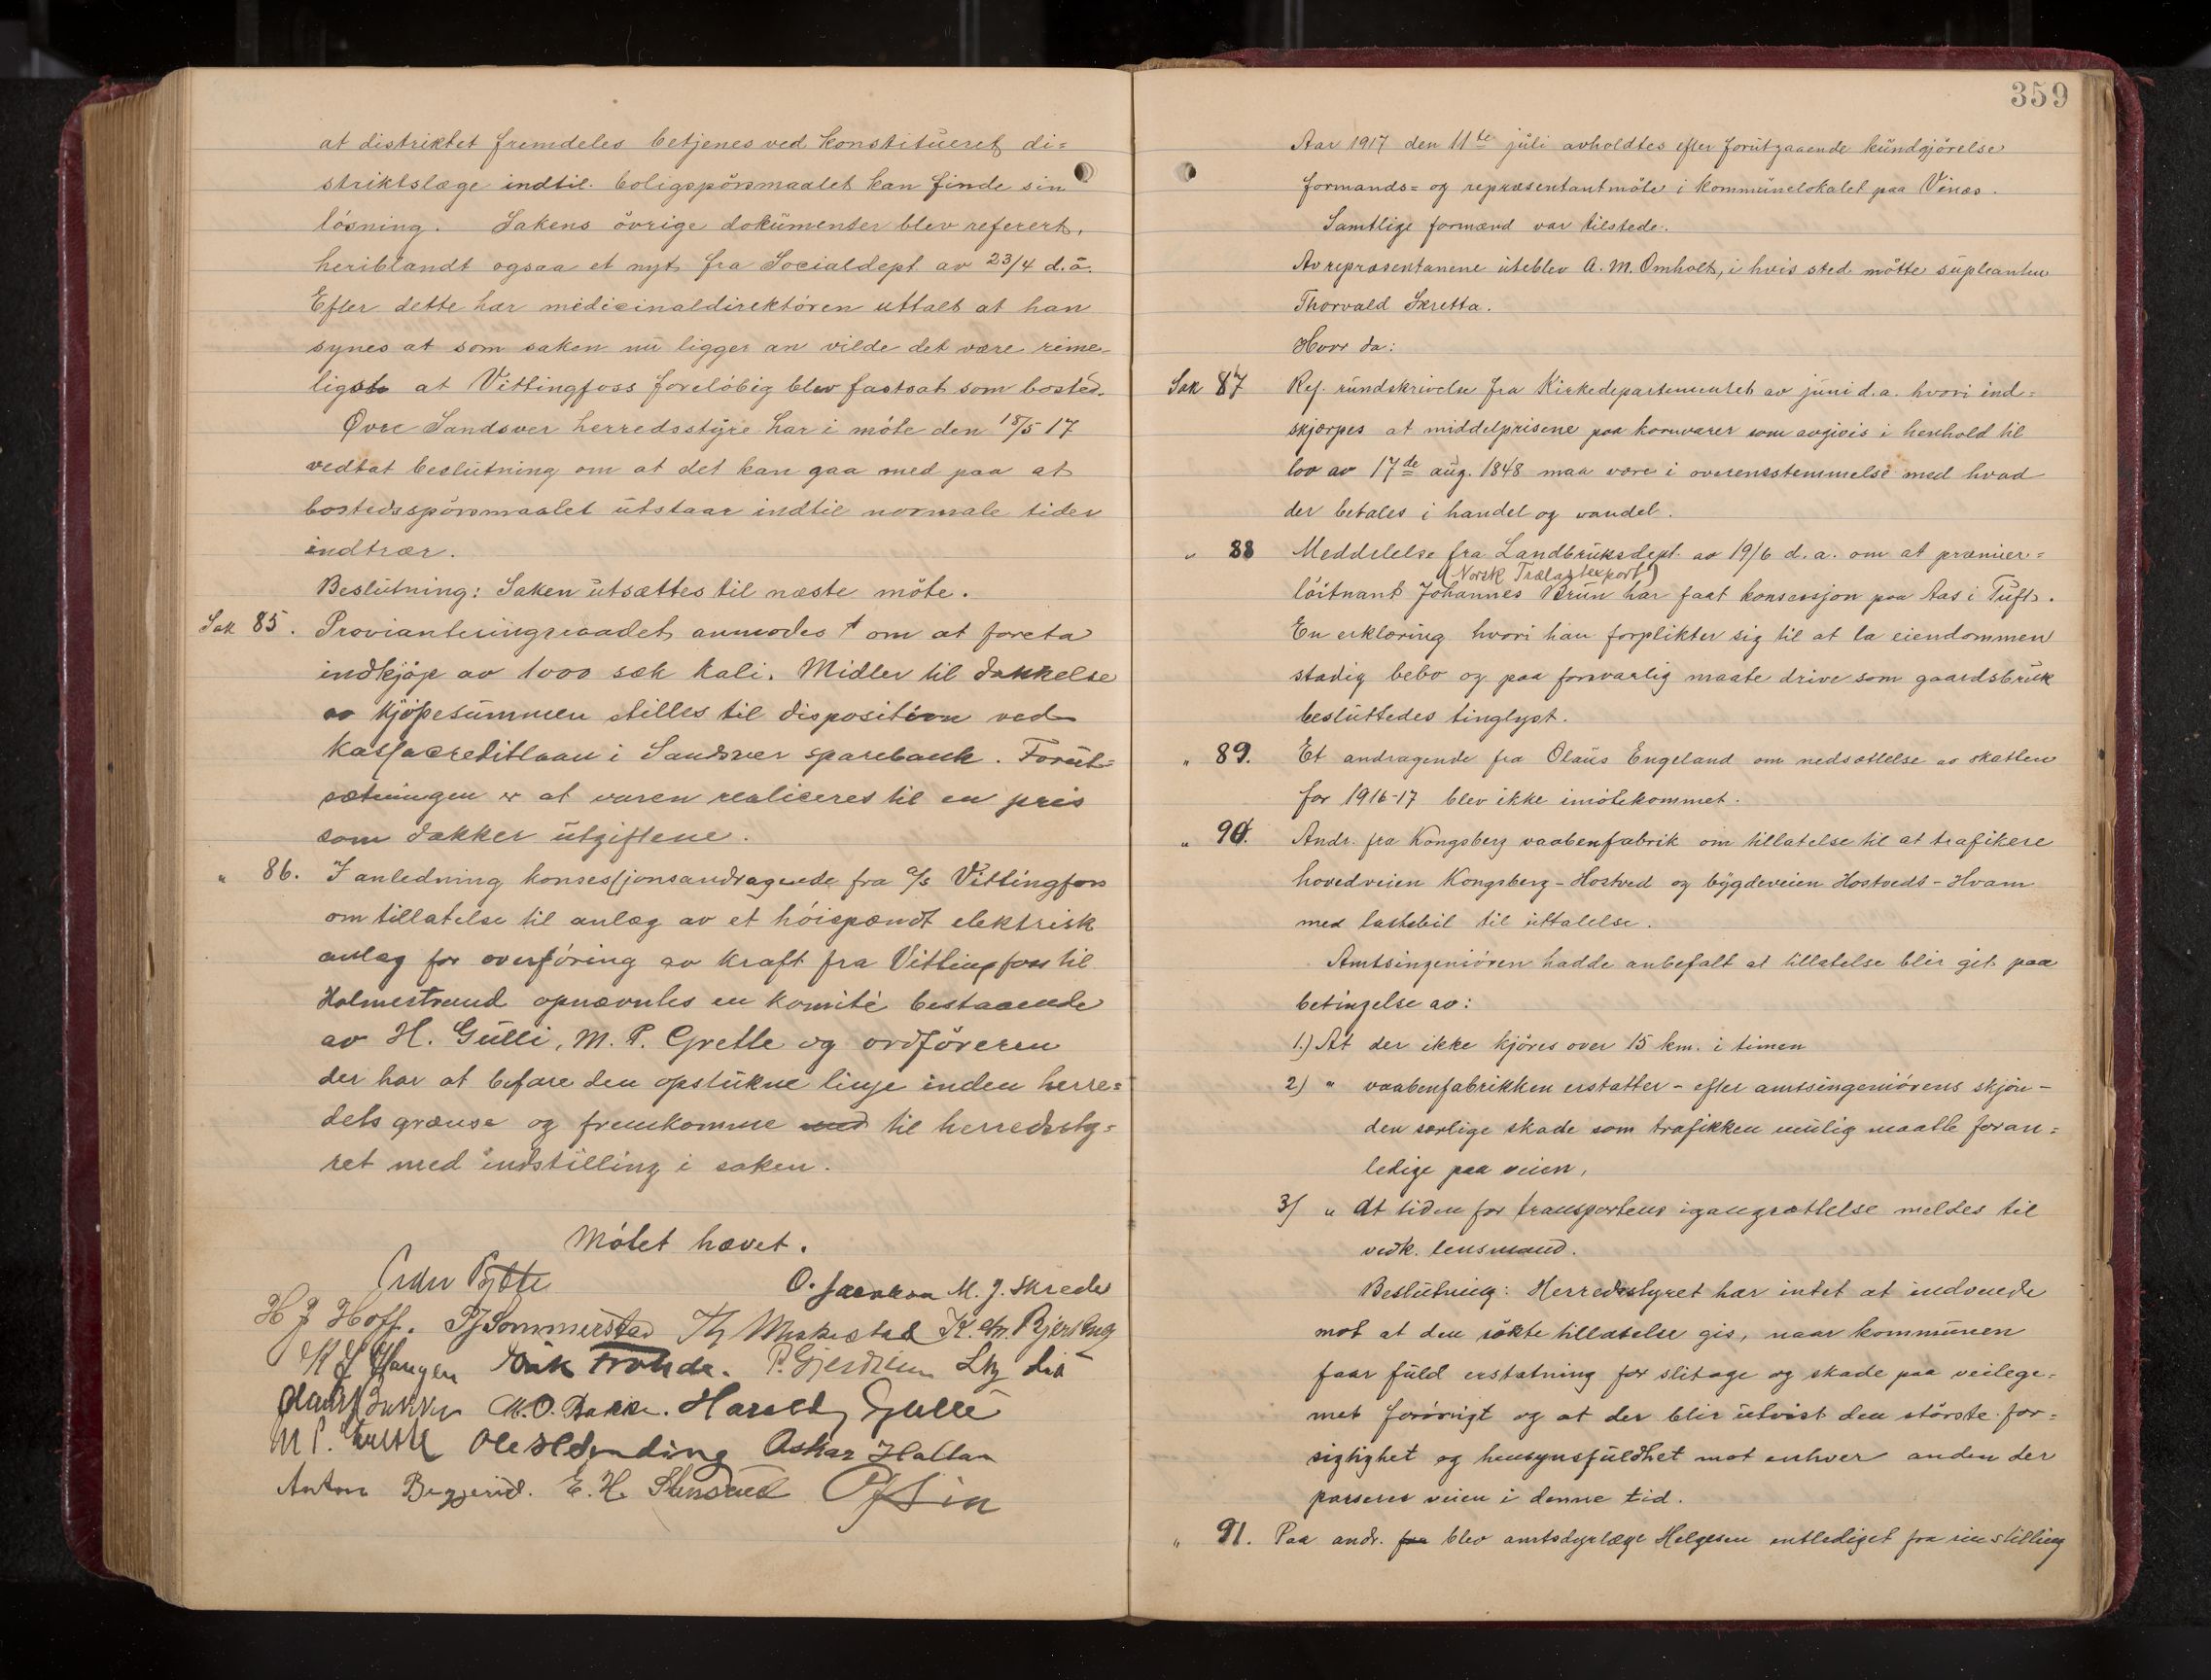 at distriktet fremdeles betjenes ved konstitueret di=
striktslæge indtil boligspörsmaalet kan finde sin
lösning. Sakens övrige dokumenter blev referert,
heriblandt ogsaa et nyt fra Socialdept av 23/4 d.å.
Efter dette har medicinaldirektören uttalt at han
synes at som saken nu ligger an vilde det være rime-
ligste at Vittingfoss foreløbig blev fastsat som bosted.
Øvre Sandsver herredsstyre har i möte den 18/5 17
vedtat beslutning om at det kan gaa med paa at
bostedsspörsmaalet utstaar indtil normale tider
indtrær.
Beslutning: Saken utsættes til næste möte.
Sak 85. Provianteringsraadet anmodes om at foreta
indkjöp av 1000 sæk kali. Midler til dækkelse
av kjöpesummen stilles til disposition ved
kassacreditlaan i Sandsver sparebank. Forut=
sætningen er at varen realiceres til en pris
som dækker utgiftene.
" 86. I anledning konsessjonsandragende fra a/s Vittingfoss
om tillatelse til anlæg av et höispændt elektrisk
anlæg for overföring av kraft fra Vittingfoss til
Holmestrand opnævntes en komité bestaaende
av H. Gulli, M. P. Grette og ordföreren
der har at befare den opstukne linje inden herre=
dets grænse og fremkomme med til herredssty=
ret med indstilling i saken.
Mötet hævet.
O. Jacobsen M. J. Skrede
H J Hoff. P J Sommerstad Th
P. Gjerdrum
M. O. Bakke. Harald Gulli
M P. Grette Ole Askar Hallan
Anton E. H. Stensrud
359
Aar 1917 den 11te juli avholdtes efter forutgaaende kundgjörelse
formands= og repræsentantmöte i kommunelokalet paa Vinæs.
Samtlige formænd var tilstede.
Av repræsentanene uteblev A. M. Omholt, i hvis sted mötte supleanten
Thorvald Skretta.
Hvor da:
Sak 87 Ref. rundskrivelse fra Kirkedepartementet av juni d.a. hvori ind=
skjærpes at middelprisene paa kornvarer som avgives i henhold til
lov av 17de aug. 1848 maa være i overensstemmelse med hvad
der betales i handel og vandel.
" 88 Meddelelse fra Landbruksdept. av 19/6 d.a. om at premier=
(Norsk Trælastexport)
löitnant Johannes Brun har faat konsessjon paa Aas i Tuft.
En erklæring hvori han forplikter sig til at la eiendommen
stadig bebo og paa forsvarlig maate drive som gaardsbruk
besluttedes tinglyst.
" 89. Et andragende fra Olaus Engeland om nedsættelse av skatten
for 1916-17 blev ikke imötekommet.
" 90. Andr. fra Kongsberg vaabenfabrik om tillatelse til at trafikere
hovedveien Kongsberg-Hostved og bygdeveien Hostvedt-Hvam
med lastebil til uttalelse.
Amtsingeniören hadde anbefalt at tillatelse blir git paa
betingelse av:
1.) At der ikke kjöres over 15 km. i timen
2) " vaabenfabrikken erstatter - efter amtsingeniörens skjön -
den særlige skade som trafikken mulig maatte foran=
ledige paa veien,
3) " At tiden for transportens igangsættelse meldes til
vedk. lensmand.
Beslutning: Herredsstyret har intet at indvende
mot at den sökte tillatelse gis, naar kommunen
faar fuld erstatning for slitage og skade paa veilege=
met forövrigt og at der blir utvist den störste for=
sigtighet og hensynsfuldhet mot enhver anden der
passerer veien i denne tid.
" 91. Paa andr. fra blev amtsdyrlæge Helgesen entlediget fra sin stilling